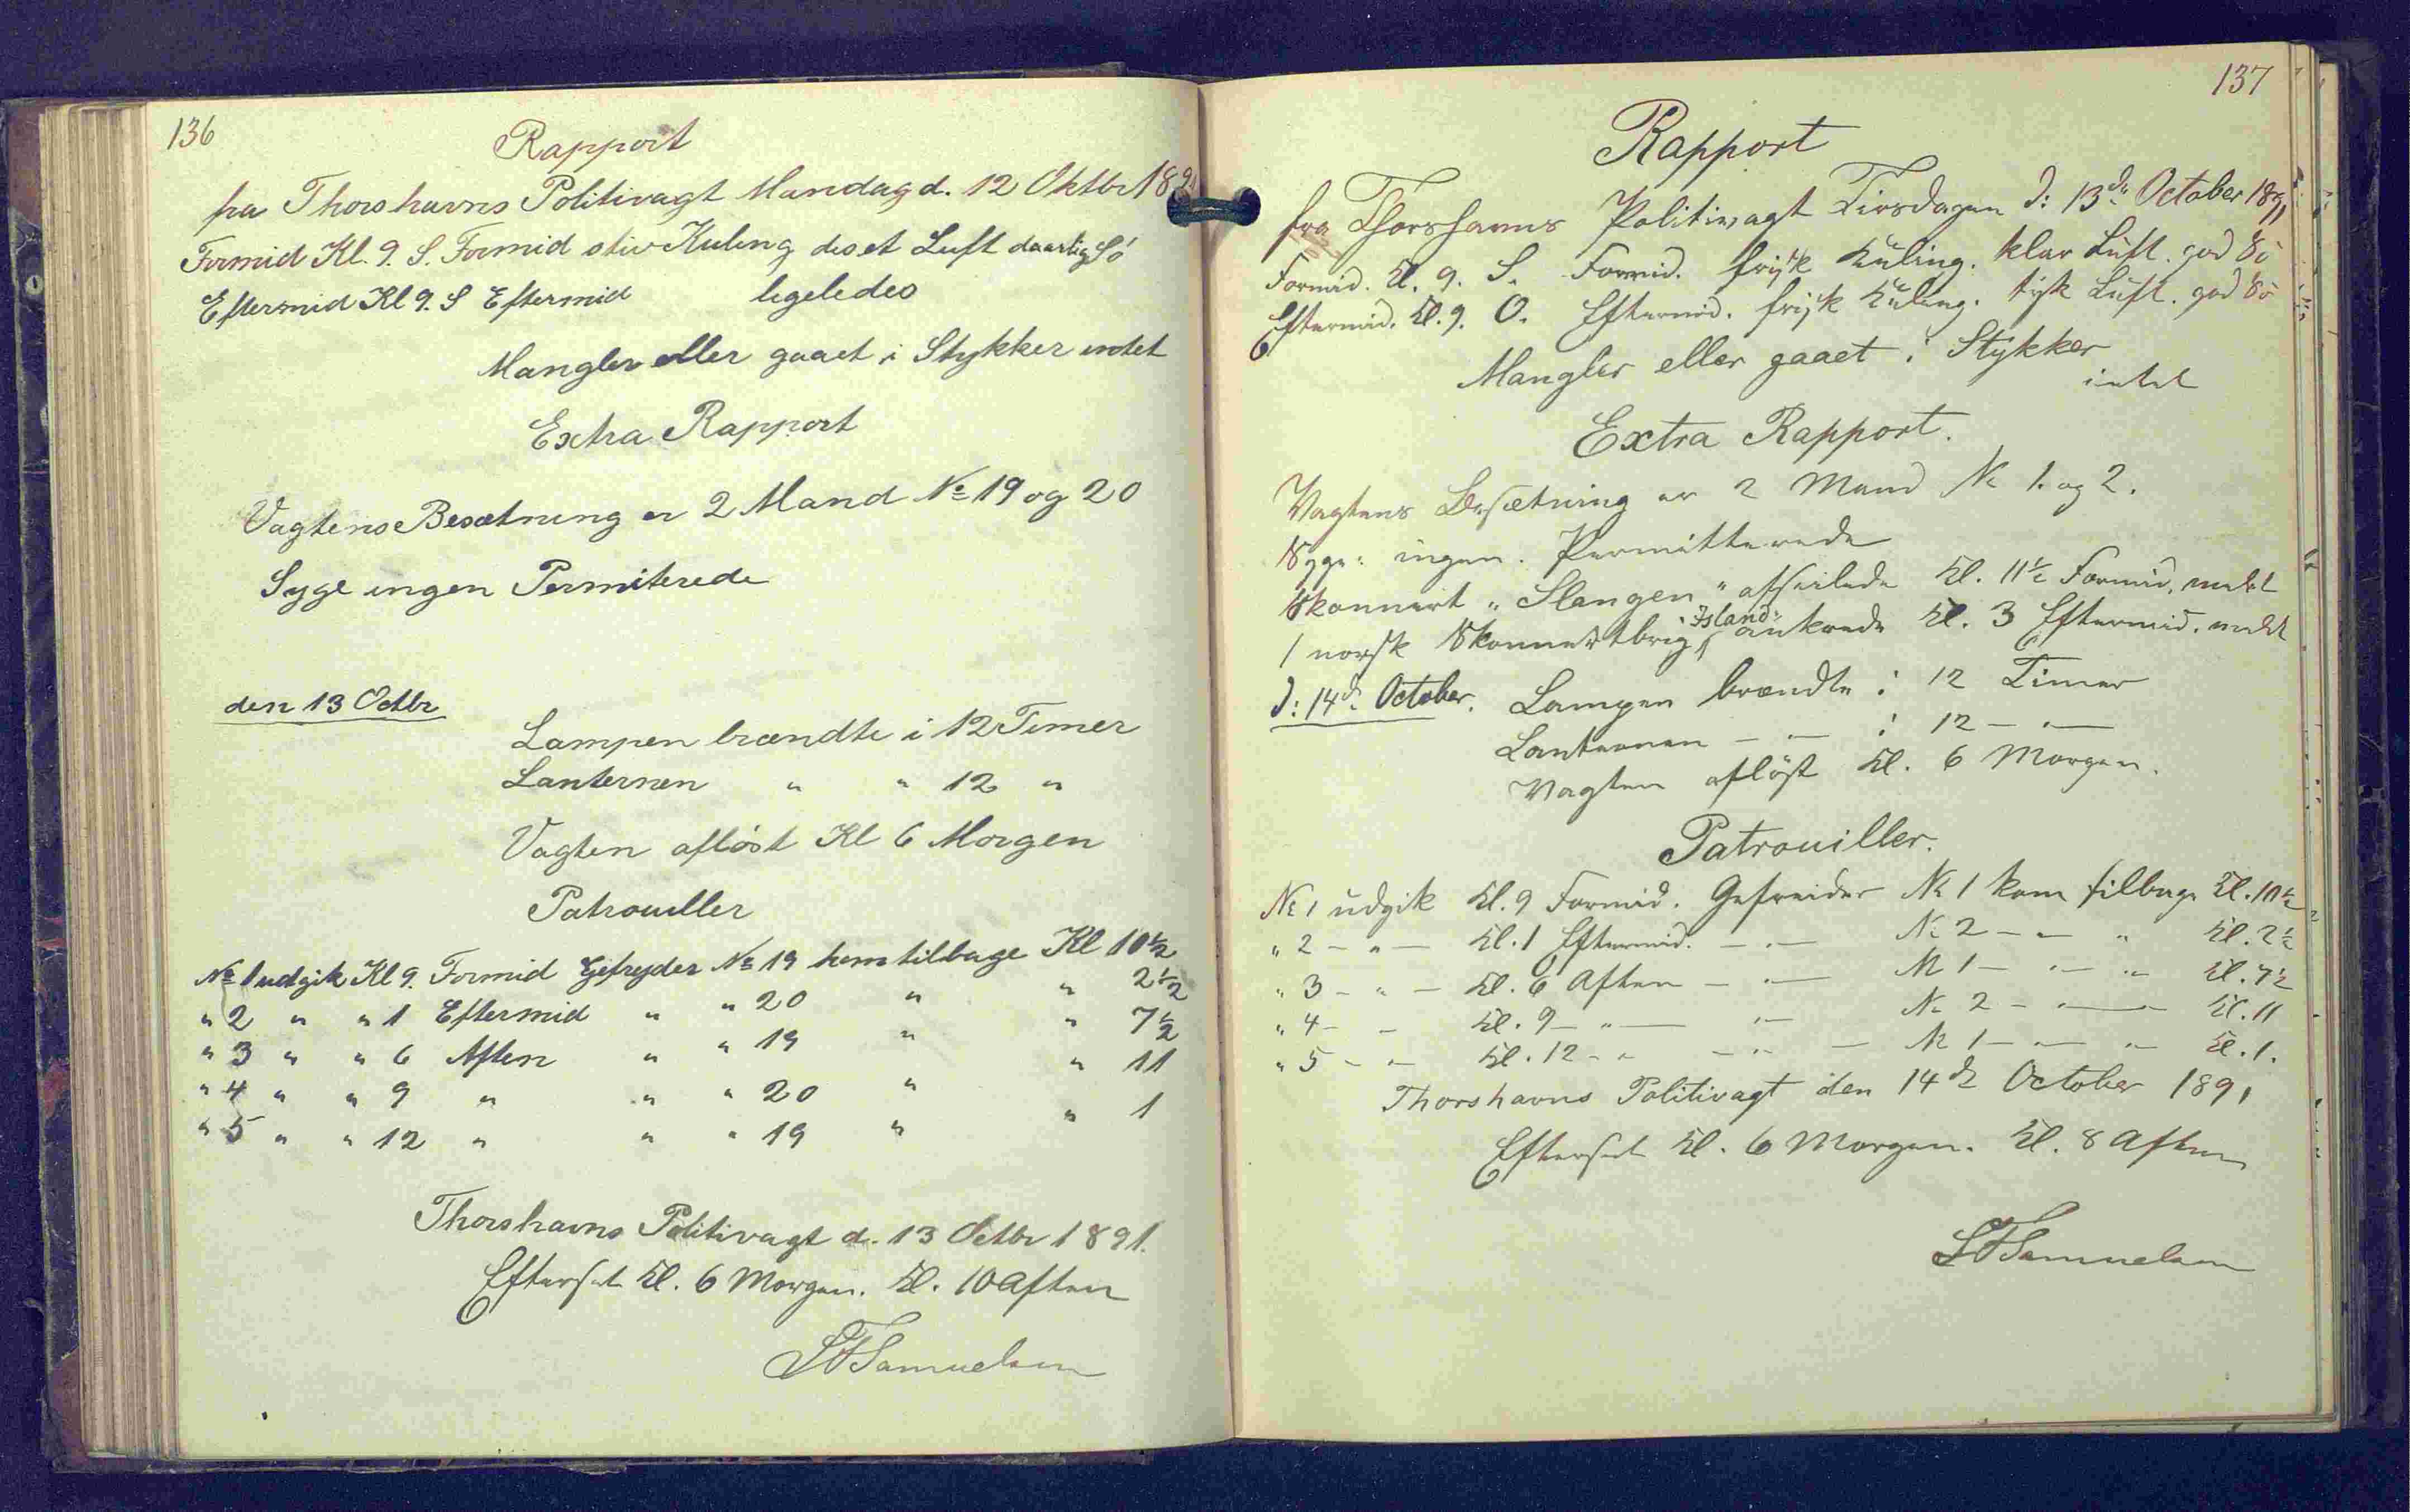 136
Rapport
fra Thorshavns Politivagt Mandag d. 12 Oktbr 189
Formid Kl. 9. S. Formid stiv Kuling diset Luft daarlig Sö
Eftermid Kl 9. S Eftermid ligeledes
Mangler eller gaaet i Stykker intet
Extra Rapport
Vagtens Besætning er 2 Mand No 19 og 20
Syge ingen Permiterede
den 13 Octbr
Lampen brændte i 12 Timer
Lanternen " " 12 "
Vagten aflöst Kl 6 Morgen
Patrouiller
No 1 udgik Kl 9. Formid Gefreyder No 19 kom tilbage Kl 10 1/2
" 2 " " 1 Eftermid " " 20 " " 2 1/2
" 3 " " 6 Aften " " 19 " " 7 1/2
" 4 " " 9 " " " 20 " " 11
" 5 " " 12 " " " 19 " " 1
Thorshavns Politivagt d. 13 Octbr 1891.
Efterset Kl. 6 Morgen. Kl. 10 Aften
Samuelsen
137
Rapport
fra Thorshavns Politivagt Tirsdagen d: 13de October 1891
Formid. Kl. 9. S. Formid. frisk Kuling. klar Luft. god Sö
Eftermid. Kl. 9. O. Eftermid. frisk Kuling. tyk Luft. god Sö
Mangler eller gaaet i Stykker
intet
Extra Rapport.
Vagtens Besætning er 2 Mand No 1. og 2.
Syge: ingen. Permitterede
Skonnert "Slangen" afseilede Kl. 11 1/2 Formid. meldt
1 norsk Skonnertbrig "Island" ankrede Kl. 3 Eftermid. meldt
d: 14de October. Lampen brændte i 12 Timer
Lanternen – " – i 12 – " –
Vagten aflöst Kl. 6 Morgen.
Patrouiller.
No 1 udgik Kl. 9 Formid. Gefreider No 1 kom tilbage Kl. 10 1/2
" 2 – " – Kl. 1 Eftermid. – " – No 2 – " – " Kl. 2 1/2
" 3 – " – Kl. 6 Aften – " – No 1 – " – " Kl. 7 1/2
" 4 – – Kl. 9 – " – " – No 2 – " – Kl. 11
" 5 – " – Kl. 12 – " – " – No 1 – " – " Kl. 1.
Thorshavns Politivagt den 14de October 1891
Efterset Kl. 6 Morgen. Kl. 8 Aften
Samuelsen